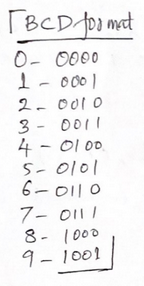 BCD format
0- 0000
1 - 0001
2 - 0010
3 - 0011
4 - 0100
5- 0101
6- 0110
7- 0111
8- 1000
9- 1001